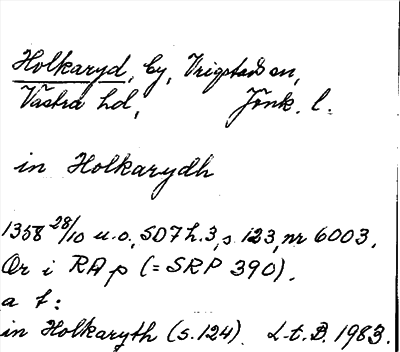 Holkaryd, by, Vrigstads sn,
Västra hd, Jönk. l.
in Holkarydh
1358 28/10 u.o., SD 7 h.3, s. 123, nr 6003.
Or i RA p (= SRP 390).
a t:
in Holkaryth (s. 124). L.t.B. 1983.